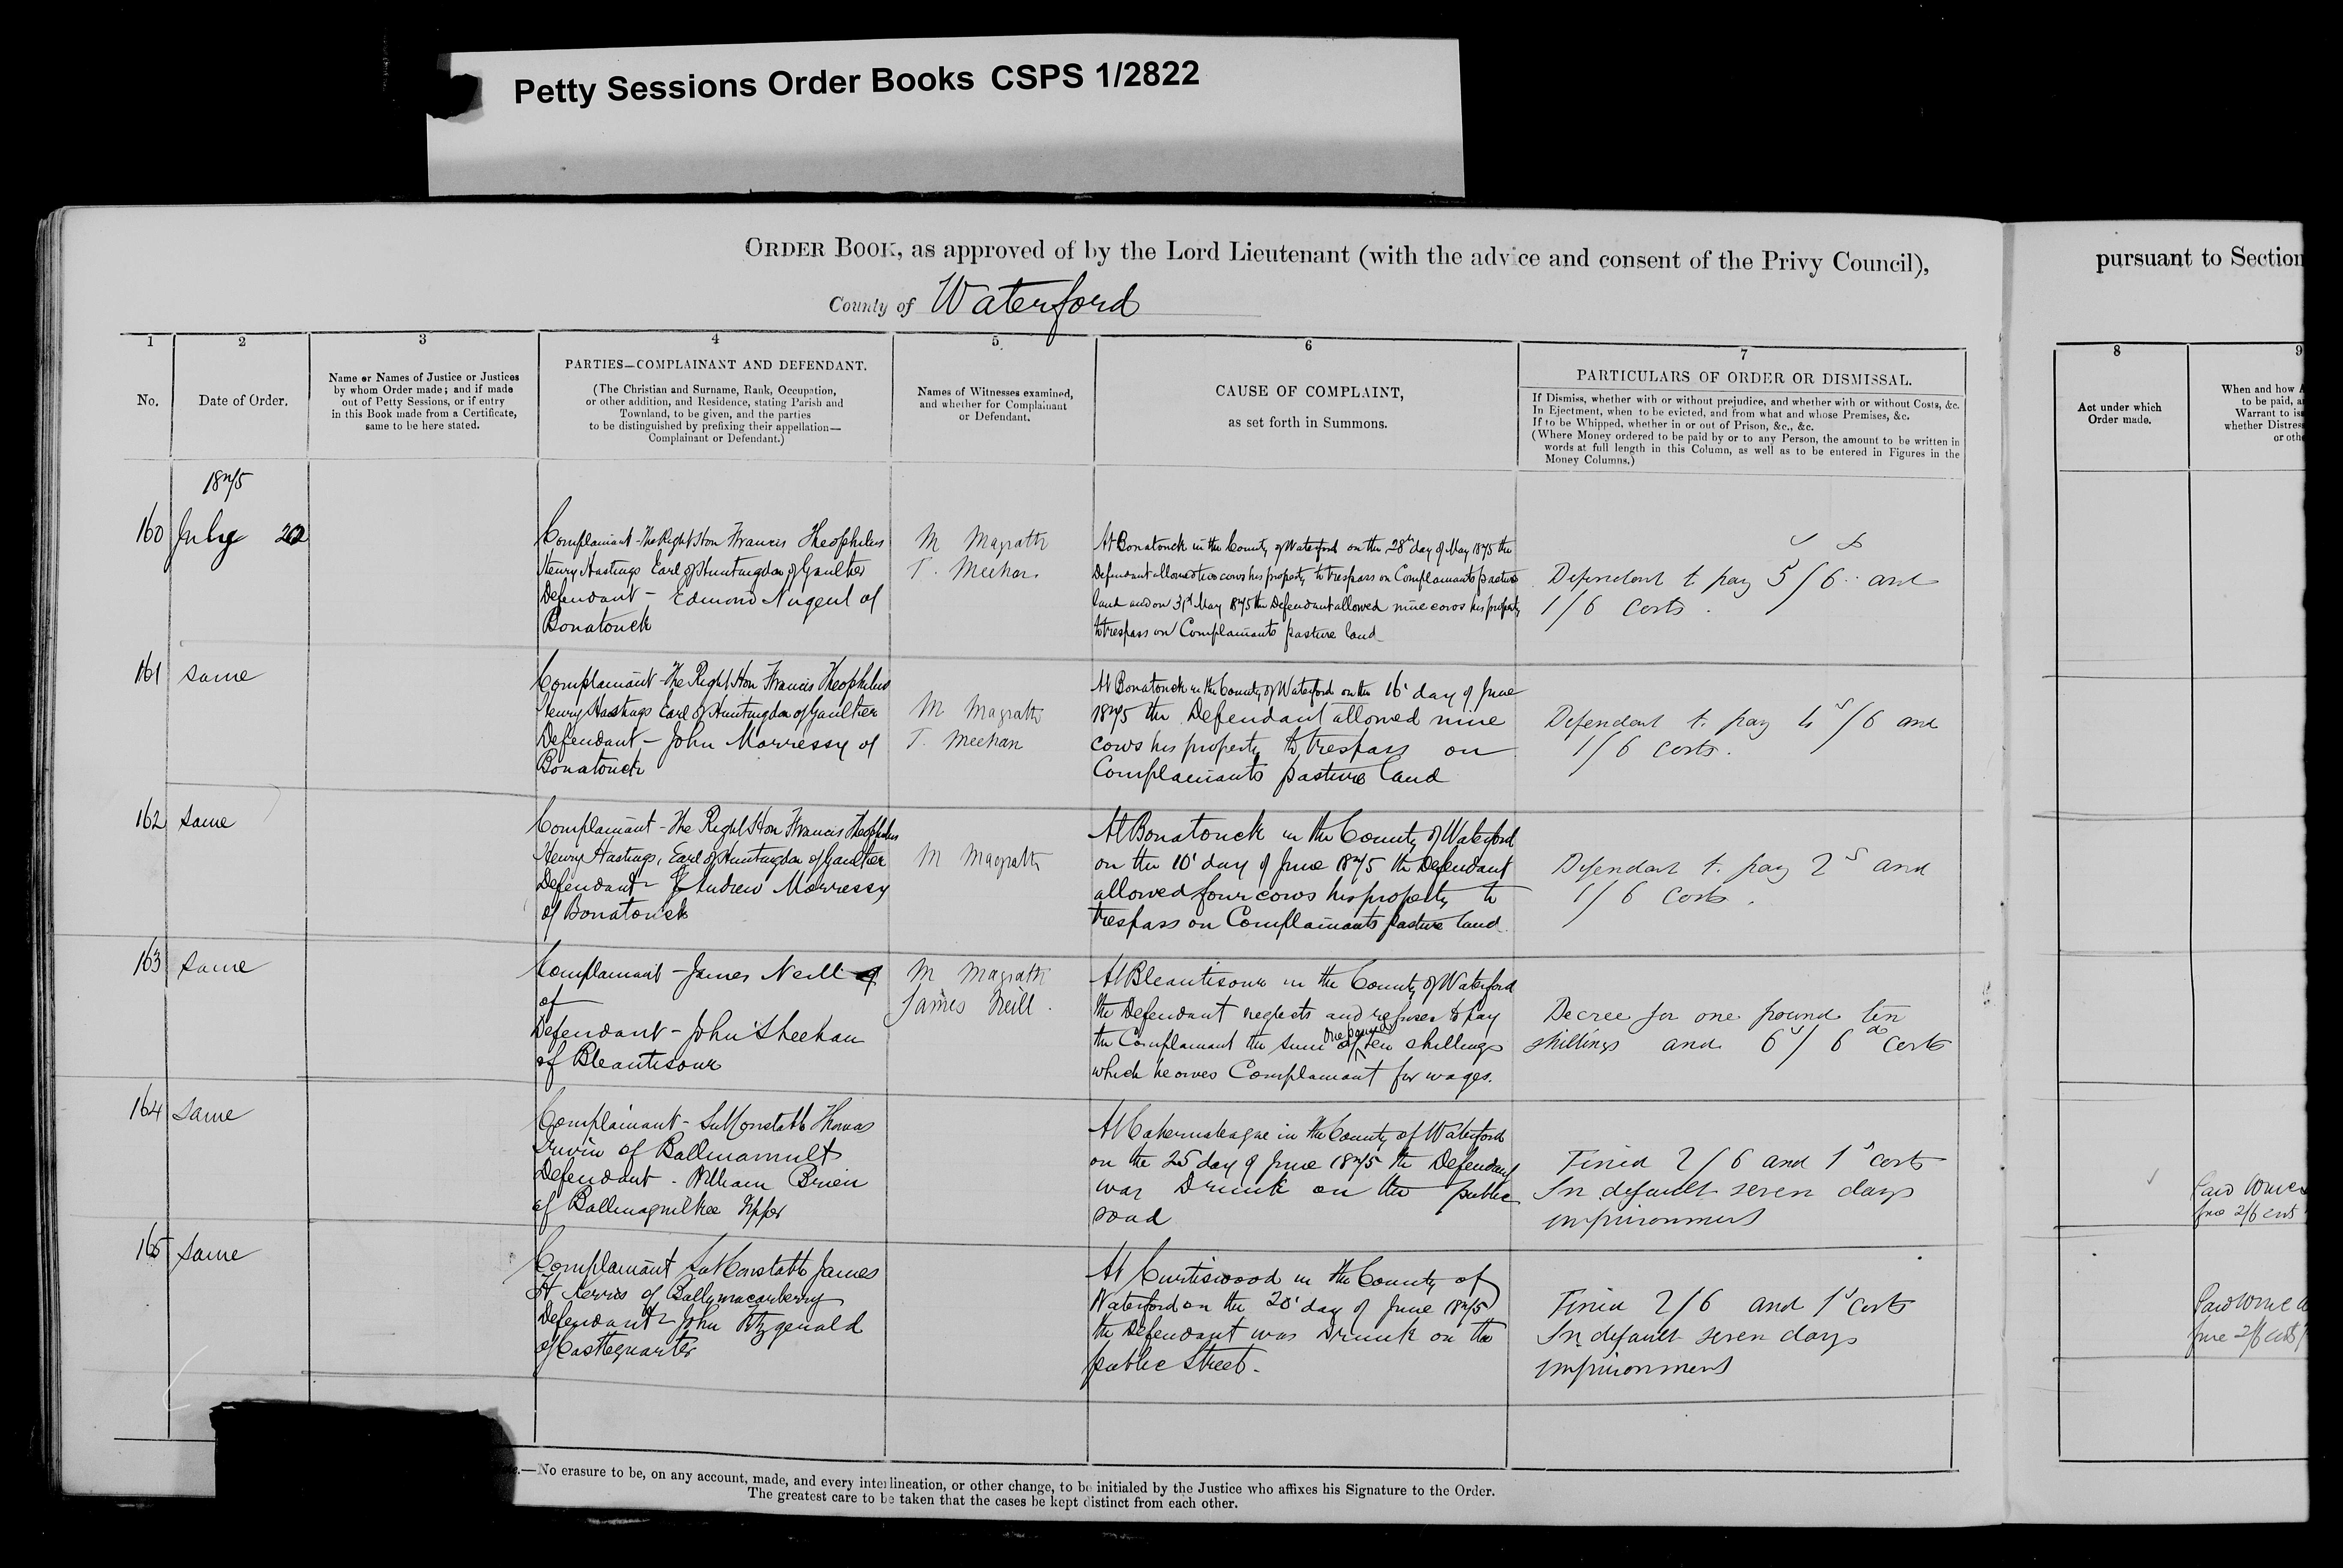 Petty Sessions Order Books CSPS 1/2822
ORDER BOOK, as approved of by the Lord Lieutenant (with the advice and consent of the Privy Council),
pursuant to Section
County of Waterford
1
No.
2
Date of Order.
3
Name or Names of Justice or Justices
by whom Order made; and if made
out of Petty Sessions, or if entry
in this Book made from a Certificate,
same to be here stated.
4
PARTIES—COMPLAINANT AND DEFENDANT.
(The Christian and Surname, Rank, Occupation,
or other addition, and Residence, stating Parish and
Townland, to be given, and the parties
to be distinguished by prefixing their appellation—
Complainant or Defendant.)
5
Names of Witnesses examined,
and whether for Complainant
or Defendant.
6
CAUSE OF COMPLAINT,
as set forth in Summons.
7
PARTICULARS OF ORDER OR DISMISSAL.
If Dismiss, whether with or without prejudice, and whether with or without Costs, &c.
In Ejectment, when to be evicted, and from what and whose Premises, &c.
If to be Whipped, whether in or out of Prison, &c., &c.
(Where Money ordered to be paid by or to any Person, the amount to be written in
words at full length in this Column, as well as to be entered in Figures in the
Money Columns.)
8
Act under which
Order made.
9
When and how
to be paid,
Warrant to
whether Distress
or
1875
160 July 20
Complainant - The Right Hon Francis Theophilus
Henry Hastings Earl of Huntingdon of Gaultier
Defendant - Edmond Nugent of
Bonatouck
M Magrath
T. Meehan
At Bonatouck in the County of Waterford on the 28th day of May 1875 the
Defendant allowed two cows his property to trespass on Complainants pasture
land and on 31st May 1875 the Defendant allowed nine cows his property
to trespass on Complainants pasture land
Defendant to pay 5s/6d and
1/6 costs.
161 same
Complainant - The Right Hon Francis Theophilus
Henry Hastings Earl of Huntingdon of Gaultier
Defendant - John Morressy of
Bonatouck
M Magrath
T. Meehan
At Bonatouck in the County of Waterford on the 16' day of June
1875 the Defendant allowed nine
cows his property to trespass on
Complainants pasture land
Defendant to pay 4s/6 and
1/6 costs.
162 same
Complainant - The Right Hon Francis Theophilus
Henry Hastings, Earl of Huntingdon of Gaultier
Defendant - Andrew Morressy
of Bonatouck
M Magrath
At Bonatouck in the County of Waterford
on the 10' day of June 1875 the Defendant
allowed four cows his property to
trespass on Complainants pasture land.
Defendant to pay 2s and
1/6 costs.
163 same
Complainant - James Neill of
of
Defendant - John Sheehan
of Bleantisour
M Magrath
James Neill.
At Bleantisour in the County of Waterford
the Defendant neglects and refuses to pay
the Complainant the sum of one pound ten shillings
which he owes Complainant for wages.
Decree for one pound ten
shillings and 6s/6d costs
164 same
Complainant - Sub Constable Thomas
Irwin of Ballinamult
Defendant - William Brien
of Ballinaguilkee Upper
At Cahernaleague in the County of Waterford
on the 25 day of June 1875 the Defendant
was Drunk on the public
road
Fined 2/6 and 1s costs
In default seven days
imprisonment
Paid
fine 2/6 costs
165 same
Complainant Sub Constable James
H Kerris of Ballymacarberry
Defendant - John Fitzgerald
of Castlequarter
At Curtiswood in the County of
Waterford on the 20' day of June 1875
the Defendant was Drunk on the
public Street.
Fined 2/6 and 1s costs
In default seven days
imprisonment
Paid
fine 2/6 costs
—No erasure to be, on any account, made, and every interlineation, or other change, to be initialed by the Justice who affixes his Signature to the Order.
The greatest care to be taken that the cases be kept distinct from each other.